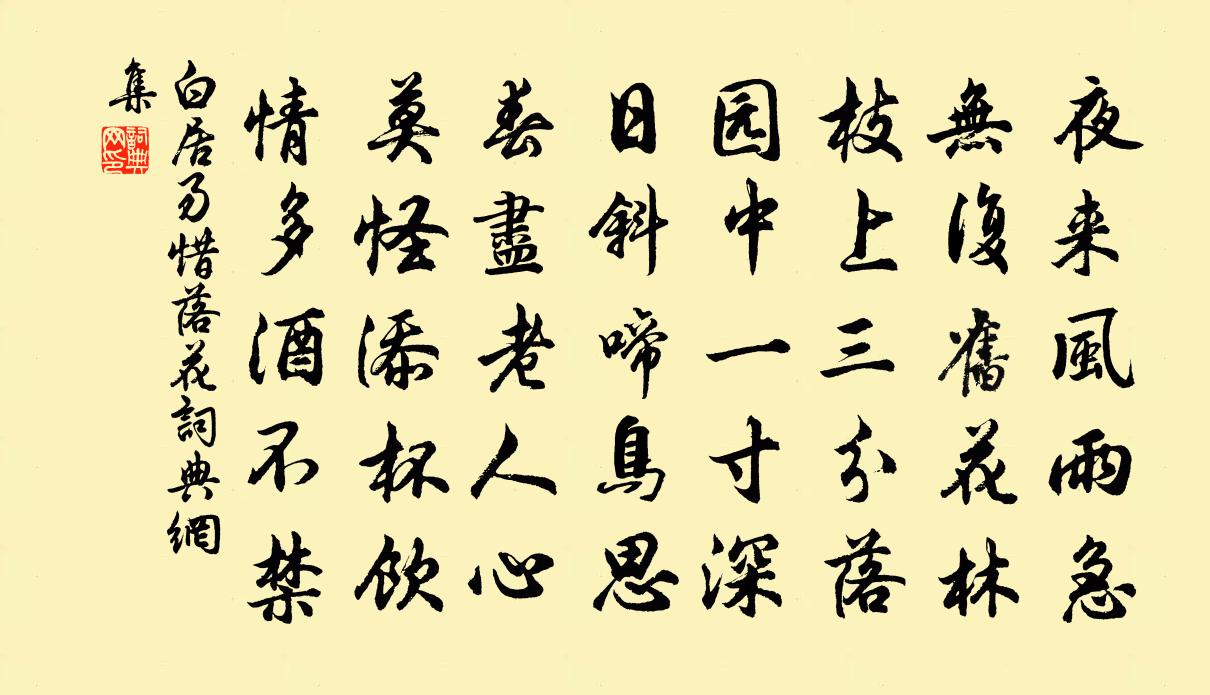 夜来風雨急
無復舊花林
枝上三分落
园中一寸深
日斜啼鳥思
春盡老人心
莫怪添杯飲
情多酒不禁
白居易惜落花詞典網
集
詞典網印